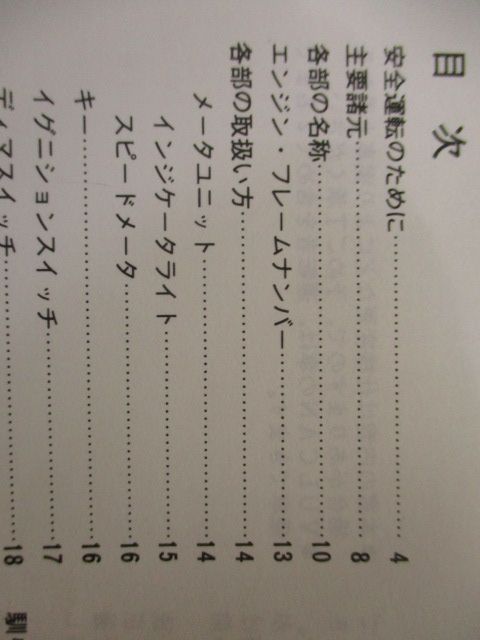 目次
安全運転のために……………………………4
主要諸元………………………………………8
各部の名称……………………………………10
エンジン・フレームナンバー………………13
各部の取扱い方………………………………14
メータユニット………………………………14
インジケータライト…………………………15
スピードメータ………………………………16
キー……………………………………………16
イグニションスイッチ………………………17
ディマスイッチ………………………………18
馴